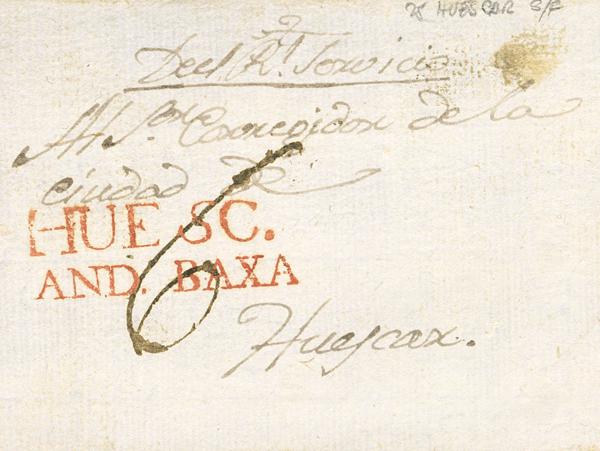 25 HUESCAR S/F
Del Rl. Servicio
Al Sor. Corregidor de la
ciudad de
HUESC.
AND. BAXA
6
Huescar.